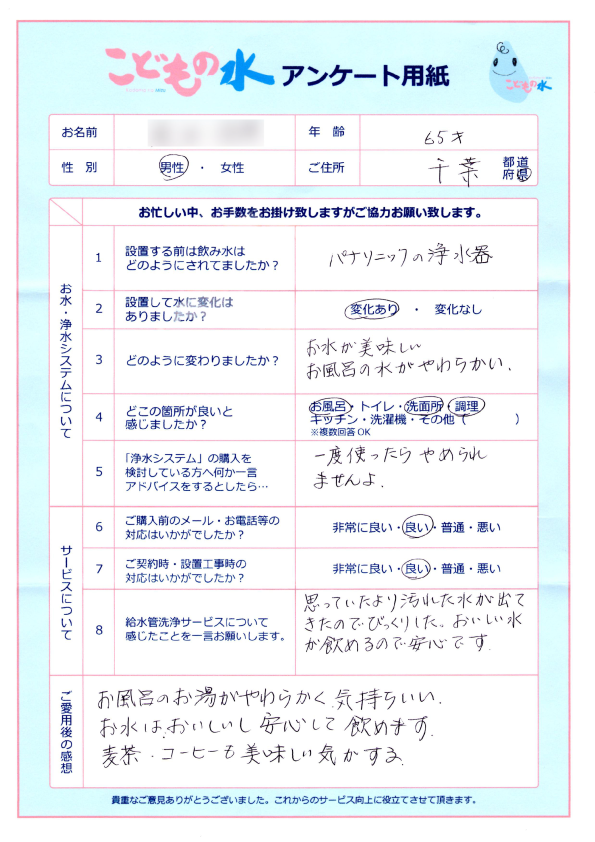 こどもの水 アンケート用紙
こどもの水
お名前
年 齢 65才
性 別 男性 ・ 女性
ご住所 千葉 都道府県
お忙しい中、お手数をお掛け致しますがご協力お願い致します。
お水・浄水システムについて
1 設置する前は飲み水は
どのようにされてましたか？
パナソニックの浄水器
2 設置して水に変化は
ありましたか？
変化あり ・ 変化なし
3 どのように変わりましたか？
お水が美味しい
お風呂の水がやわらかい.
4 どこの箇所が良いと
感じましたか？
お風呂・トイレ・洗面所・調理
キッチン・洗濯機・その他（ ）
※複数回答OK
5 「浄水システム」の購入を
検討している方へ何か一言
アドバイスをするとしたら…
一度使ったら やめられ
ませんよ.
サービスについて
6 ご購入前のメール・お電話等の
対応はいかがでしたか？
非常に良い・良い・普通・悪い
7 ご契約時・設置工事時の
対応はいかがでしたか？
非常に良い・良い・普通・悪い
8 給水管洗浄サービスについて
感じたことを一言お願いします。
思っていたより汚れた水が出て
きたのでびっくりした. おいしい水
が飲めるので安心です.
ご愛用後の感想
お風呂のお湯がやわらかく.気持ちいい.
お水は.おいしいし 安心して 飲めます.
麦茶.コーヒーも美味しい気がする.
貴重なご意見ありがとうございました。これからのサービス向上に役立てさせて頂きます。